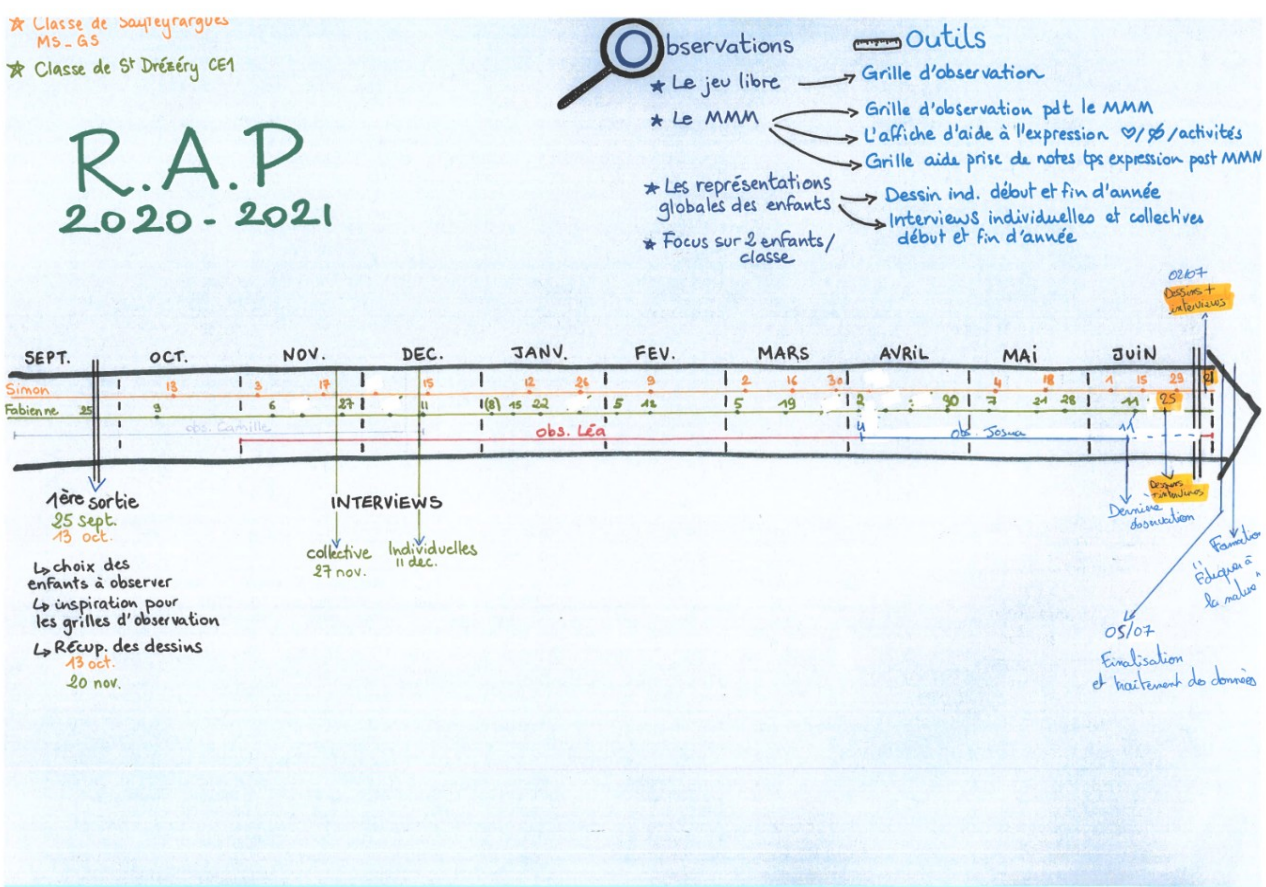 ☆ Classe de Sauteyrargues
MS_GS
☆ Classe de St Drézéry CE1
R.A.P
2020-2021
Observations
★ Le jeu libre
★ Le MMM
★ Les représentations
globales des enfants
★ Focus sur 2 enfants/
classe
Outils
Grille d'observation
Grille d'observation pdt le MMM
L'affiche d'aide à l'expression ♡/ /activités
Grille aide prise de notes tps expression post MMM
Dessin ind. début et fin d'année
Interviews individuelles et collectives
début et fin d'année
02/07
Dessins +
interviews
SEPT. OCT. NOV. DEC. JANV. FEV. MARS AVRIL MAI JUIN
Simon 13 3 17 15 12 26 9 2 16 30 4 18 1 15 29
Fabienne 25 9 6 27 11 (8) 15 22 5 12 5 19 2 30 7 21 28 11 25
obs. Camille
obs. Léa
obs. Josua
1ère sortie
25 sept.
13 oct.
↳ choix des
enfants à observer
↳ inspiration pour
les grilles d'observation
↳ Récup. des dessins
13 oct.
20 nov.
INTERVIEWS
collective
27 nov.
Individuelles
11 dec.
Dernière
observation
Dessins
+ interviews
Formation
"Eduquer à
la nature"
05/07
Finalisation
et traitement des données